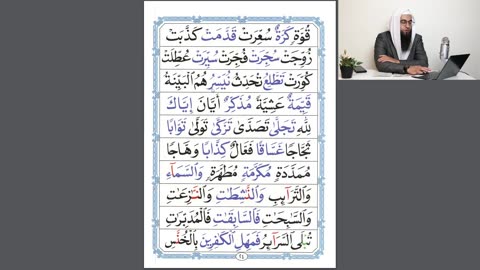 قُوَّةٍ كَرَّةٌ سُعِّرَتْ قَدَّمَتْ كَذَّبَتْ
زُوِّجَتْ سُجِّرَتْ فُجِّرَتْ سُيِّرَتْ عُطِّلَتْ
كُوِّرَتْ تَطَّلِعُ تُحَدِّثُ نُيَسِّرُ هُمُ الْبَيِّنَةُ
قَيِّمَةٌ عَشِيَّةً مُذَكِّرٌ اَيَّانَ اِيَّاكَ
لِلّٰهِ تَجَلّٰى تَصَدّٰى تَزَكّٰى تَوَلّٰى تَوَّابًا
ثَجَّاجًا غَسَّاقًا فَعَّالٌ كِذَّابًا وَهَّاجًا
مُمَدَّدَةٍ مُكَرَّمَةٍ مُطَهَّرَةٍ وَالسَّمَآءِ
وَالتَّرَآئِبِ وَالنّٰشِطٰتِ وَالنّٰزِعٰتِ
وَالسّٰبِحٰتِ فَالسّٰبِقٰتِ فَالْمُدَبِّرٰتِ
تُبْلَى السَّرَآئِرُ فَمَهِّلِ الْكٰفِرِيْنَ بِالْخُنَّسِ
٢٤